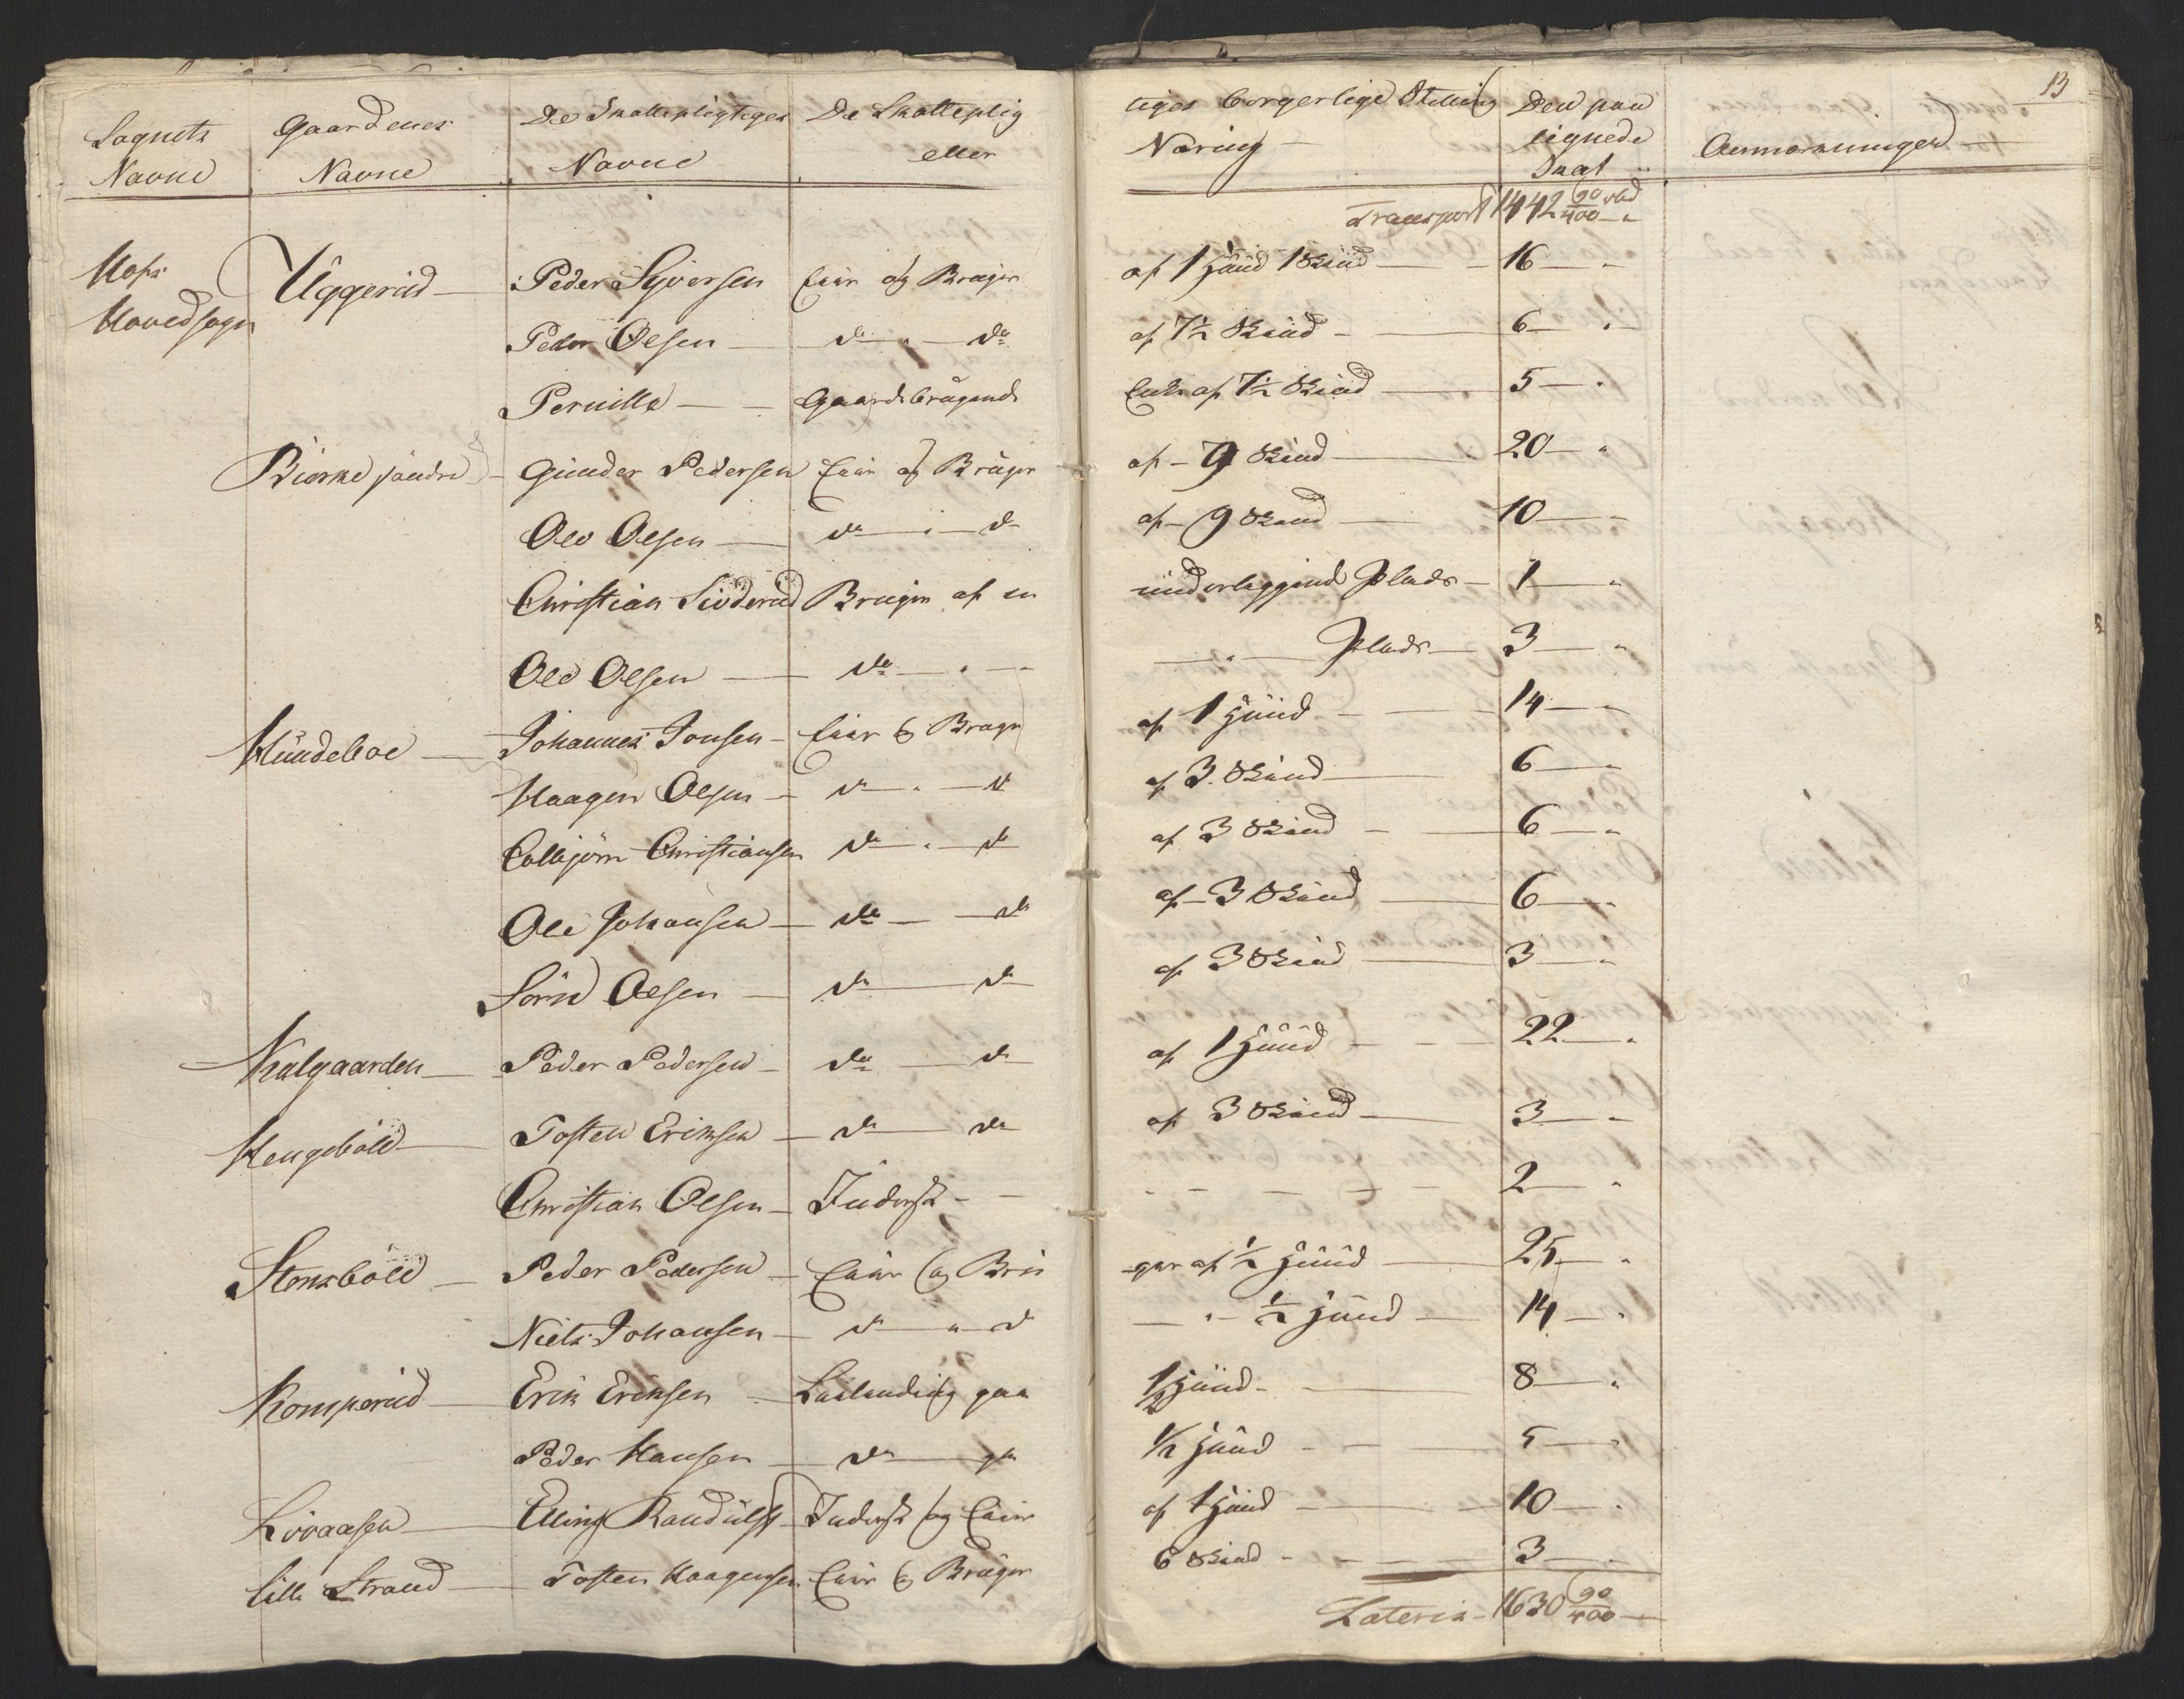 13
Sognets Navne | Gaardenes Navne | De Skattepligtiges Navne | De Skatteplig eller | tiges borgerlige Stilling Næring | Den paa lignede Skat | Anmærkninger
Transport 1442 90/400
Hofs Hovedsogn | Uggerud | Peder Syversen | Eier og Bruger | af 1 Huud 1 Skind | 16
Peder Olsen | do do | af 7½ Skind | 6
Pernille | Gaardbrugende | Enke af 7½ Skind | 5
Biørke søndre | Gunder Pedersen | Eier og Bruger | af 9 Skind | 20
Ole Olsen | do do | af 9 Skind | 10
Christian Siøderud | Bruger af en | underliggende Plads | 1
Ole Olsen | do | Plads | 3
Hundeboe | Johannes Jonsen | Eier og Bruger | af 1 Huud | 14
Haagen Olsen | do do | af 3 Skind | 6
Colbjörn Christiansen | do do | af 3 Skind | 6
Ole Johansen | do do | af 3 Skind | 6
Sörn Olsen | do do | af 3 Skind | 3
Kalgaarden | Peder Pedersen | do do | af 1 Huud | 22
Hengeböld | Tosten Eriksen | do do | af 3 Skind | 3
Christian Olsen | Inderst | 2
Stensböld | Peder Pedersen | Eier og Bru | ger af ½ Huud | 25
Niels Johansen | do do | ½ Huud | 14
Komperud | Erik Eriksen | Leilending paa | ½ Huud | 8
Peder Hansen | do paa | ½ Huud | 5
Lövaasen | Elling Randulfs | Inderst og Eier | af 1 Huud | 10
lille Strand | Tosten Haagensen | Eier og Bruger | 6 Skind | 3
Lateris 1630 90/400